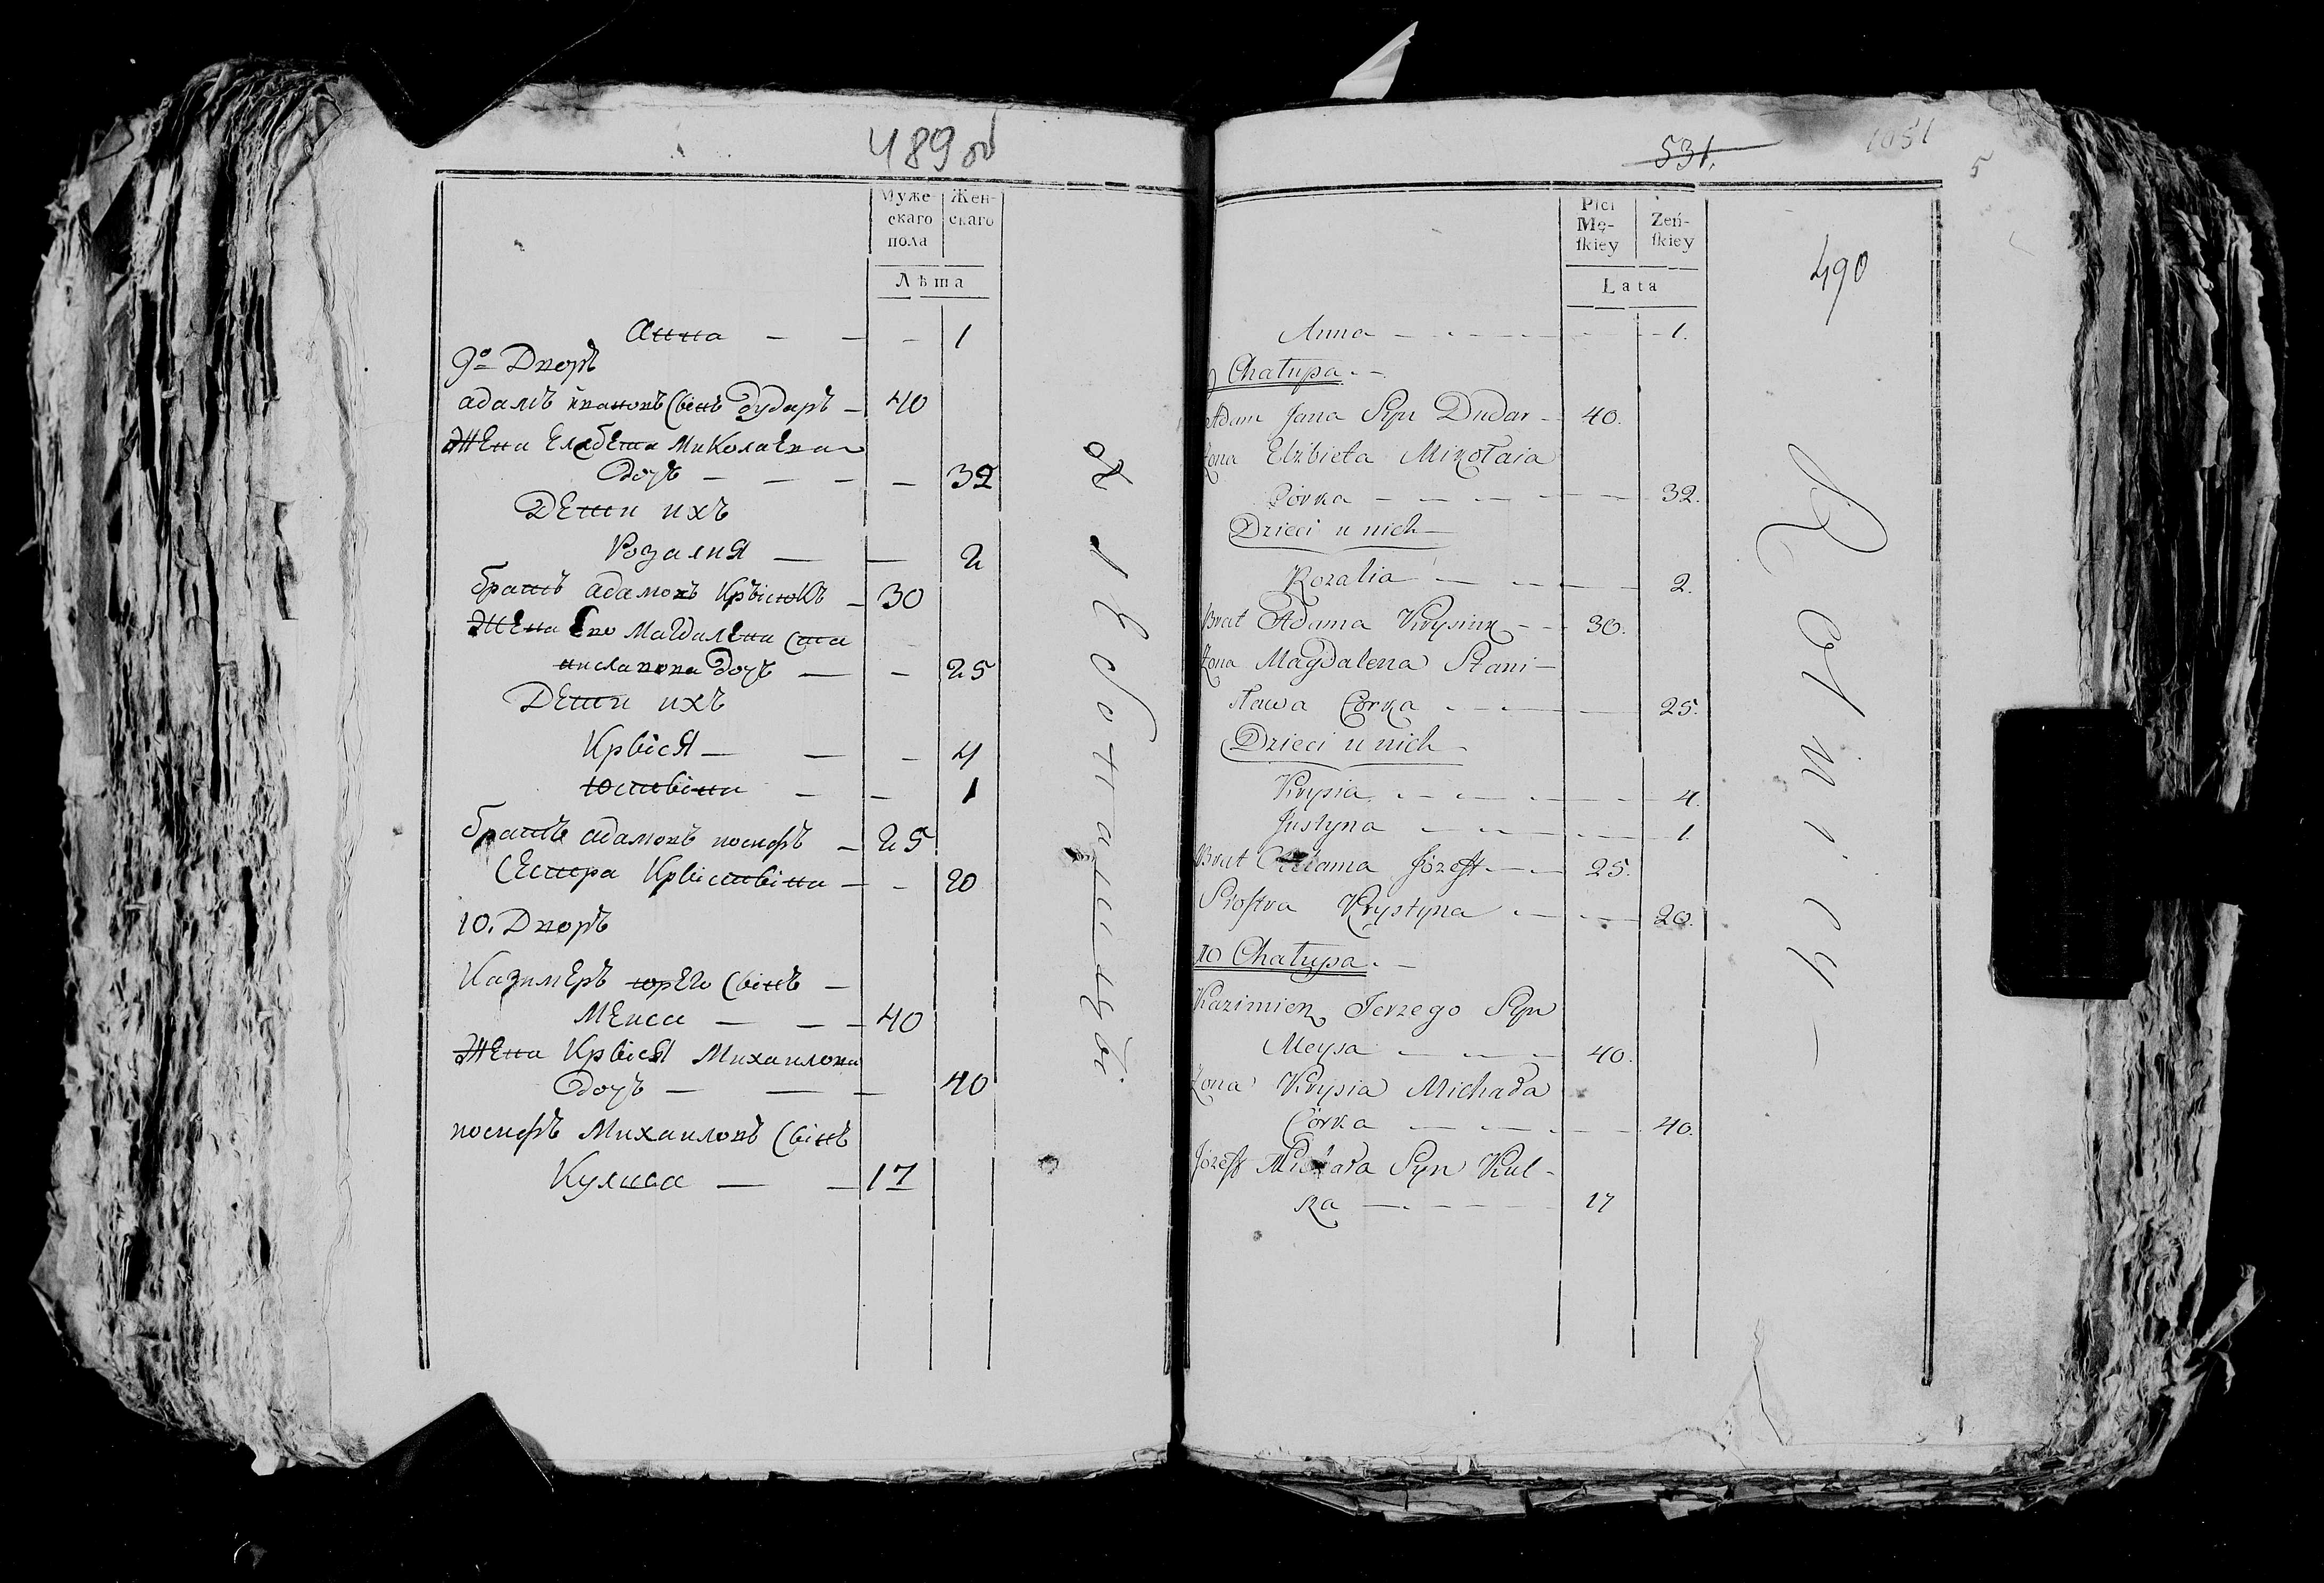 489 об
Муже-
скаго
пола
Жен-
скаго
Лѣта
Анна — — — 1
9о Дворъ
адамъ ивановъ Сынъ дударъ — 40
Жена Елзбета Миколаева
дочь — — — — 32
Дети ихъ
Розалия — — 2
братъ адамовъ Крысюкъ — 30
Жена Ево Магдалена Ста
ниславова дочь — — 25
Дети ихъ
Крыся — — — 4
Юстына — — 1
братъ адамовъ иосифъ — 25
Сестра Крыстына — — 20
10. Дворъ
Казимеръ юрего Сынъ —
Меиса — — — 40
Жена Крыся Михаилова
дочь — — — 40
иосифъ Михаиловъ Сынъ
Кулка — — 17
531.
1051
5
490
Płci
Mę-
ſkiey
Żeń-
ſkiey
Lata
Anna — — — 1.
9 Chałupa. —
Adam Jana Syn Dudar — 40.
Żona Elżbieta Mikołaia
Córka — — — 32.
Dzieci u nich —
Rozalia — — — 2.
Brat Adama Krysiuk — — 30.
Żona Magdalena Stani—
sława Córka — — — 25.
Dzieci u nich —
Krysia — — — 4.
Justyna — — — 1.
Brat Adama Józeff — — 25.
Siostra Krystyna — — 20.
10 Chałupa. —
Kazimierz Jerzego Syn
Meysa — — — 40.
Żona Krysia Michała
Córka — — — 40.
Józeff Michała Syn Kul-
ka — — — 17